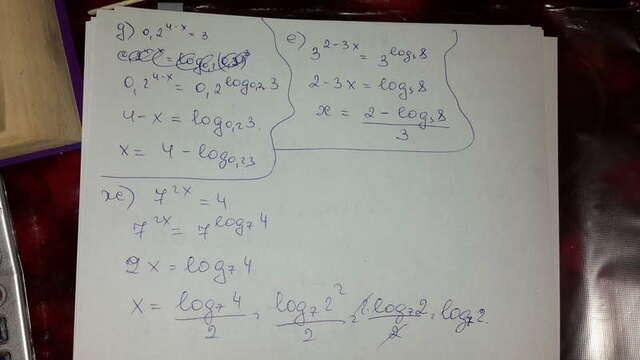 д) 0,2^{4-x} = 3
0,2^{4-x} = 0,2^{log_{0,2} 3}
4-x = log_{0,2} 3.
x = 4 - log_{0,2} 3
е) 3^{2-3x} = 3^{log_3 8}
2-3x = log_3 8
x = \frac{2 - log_3 8}{3}
ж) 7^{2x} = 4
7^{2x} = 7^{log_7 4}
2x = log_7 4
x = \frac{log_7 4}{2} = \frac{log_7 2^2}{2} = \frac{2·log_7 2}{2} = log_7 2